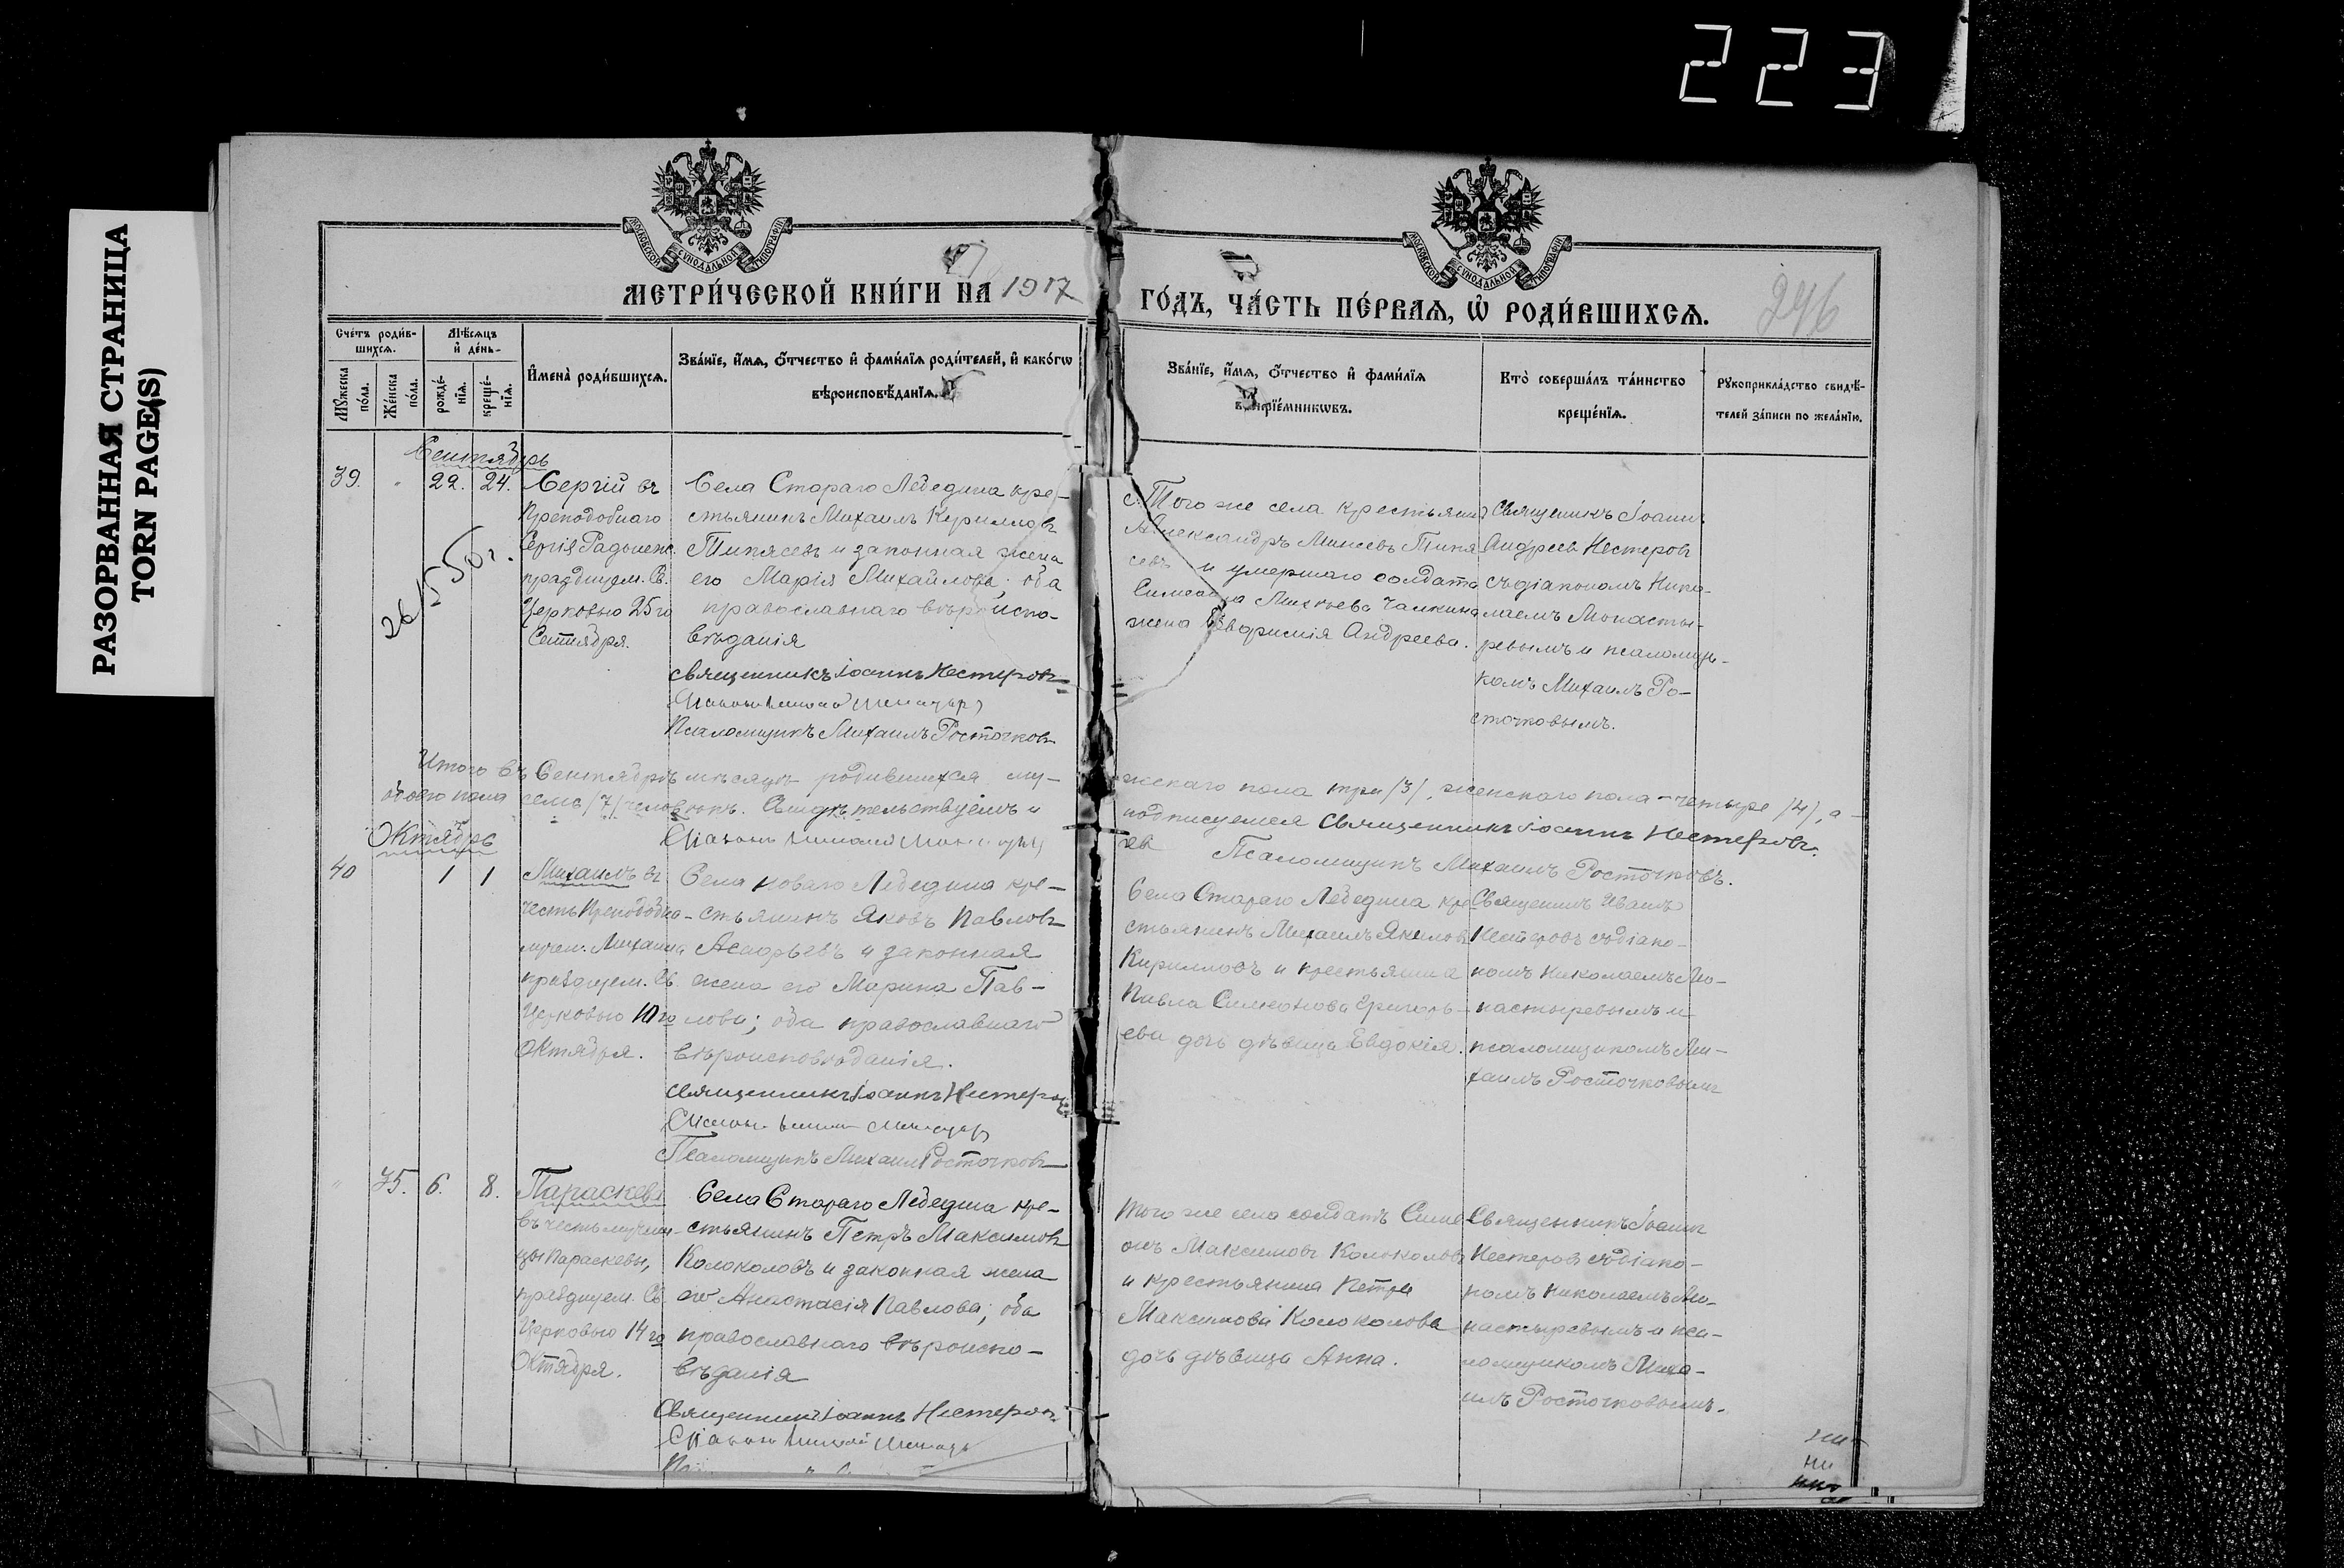 223
РАЗОРВАННАЯ СТРАНИЦА
TORN PAGE(S)
МОСКОВСКОЙ СѴНОДАЛЬНОЙ ТИПОГРАФІИ
МОСКОВСКОЙ СѴНОДАЛЬНОЙ ТИПОГРАФІИ
МЕТРИ́ЧЕСКОЙ КНИ́ГИ НА 1917
ГО́ДЪ, ЧА́СТЬ ПЕ́РВАЯ, Ѡ҆ РОДИ́ВШИХСЯ.
246
Сче́тъ роди́в-
шихся.
Мѣ́сяцъ
и҆ де́нь.
Мꙋ́жеска по́ла.
Же́нска по́ла.
рожде́-
нїя.
креще́-
нїя.
И҆мена̀ роди́вшихся.
Зва́нїе, и҆́мя, ѻ҆́тчество и҆ фами́лїя роди́телей, и҆ како́гѡ
вѣроисповѣ́данїя.
Зва́нїе, и҆́мя, ѻ҆́тчество и҆ фами́лїя
воспрїе́мникѡвъ.
Кто̀ соверша́лъ та́инство
креще́нїя.
Рꙋкоприкла́дство свидѣ́-
телей за́писи по жела́нїю.
Сентябрь
39. " 22. 24.
Сергій въ
Преподобнаго
Сергія Радонеж.
празднуем. Св.
Церковью 25го
Сентября.
Села Стараго Лебедина кре-
стьянинъ Михаилъ Кирилловъ
Типясевъ и законная жена
его Марія Михайлова; оба
православнаго вѣроиспо-
вѣданія
священникъ Іоаннъ Нестеровъ
Псаломщикъ Михаилъ Росточковъ
Того же села крестьянинъ
Александръ Минеевъ Типя
севъ и умершаго солдата
Симеона Чалкина
жена Андреева.
Священникъ Іоаннъ
Андреевъ Нестеровъ
съ діакономъ Нико-
лаемъ Монасты-
ревымъ и псаломщи-
комъ Михаилъ Ро-
сточковымъ.
Итого въ Сентябрѣ мѣсяцѣ родившихся му-
жскаго пола три /3/, женскаго пола - четыре /4/, а
обоего пола семь /7/ человѣкъ. Свидѣтельствуемъ и
подписуемся Священникъ Іоаннъ Нестеровъ.
Псаломщикъ Михаилъ Росточковъ.
Октябрь
40 1 1
Михаилъ въ
честь Преподобно-
мучен. Михаила
празднуем. Св.
Церковью 10го
Октября.
Села Новаго Лебедина кре-
стьянинъ Яковъ Павловъ
и законная
жена его Марина Пав-
лова; оба православнаго
вѣроисповѣданія.
священникъ Іоаннъ Нестеровъ
Псаломщикъ Михаилъ Росточковъ
Села Стараго Лебедина кре
стьянинъ Михаилъ
Кирилловъ и крестьянина
Павла Симеонова Григорь-
ева дочь дѣвица Евдокія.
Священникъ Иванъ
Нестеровъ съ діако-
номъ Николаемъ Мо-
настыревымъ и
псаломщикомъ Ми-
хаилъ Росточковымъ
" 35. 6. 8.
Параскева
въ честь мучени-
цы Параскевы,
празднуем. Св.
Церковью 14го
Октября.
Села Стараго Лебедина кре-
стьянинъ Петръ Максимовъ
Колоколовъ и законная жена
его Анастасія Павлова; оба
православнаго вѣроиспо-
вѣданія
Священникъ Іоаннъ Нестеровъ
Того же села солдатъ Симе
онъ Максимовъ Колоколовъ
и крестьянина Петра
Максимова Колоколова
дочь дѣвица Анна.
Священникъ Іоаннъ
Нестеровъ съ діако-
номъ Николаемъ Мо-
настыревымъ и пса-
ломщикомъ Миха-
илъ Росточковымъ.